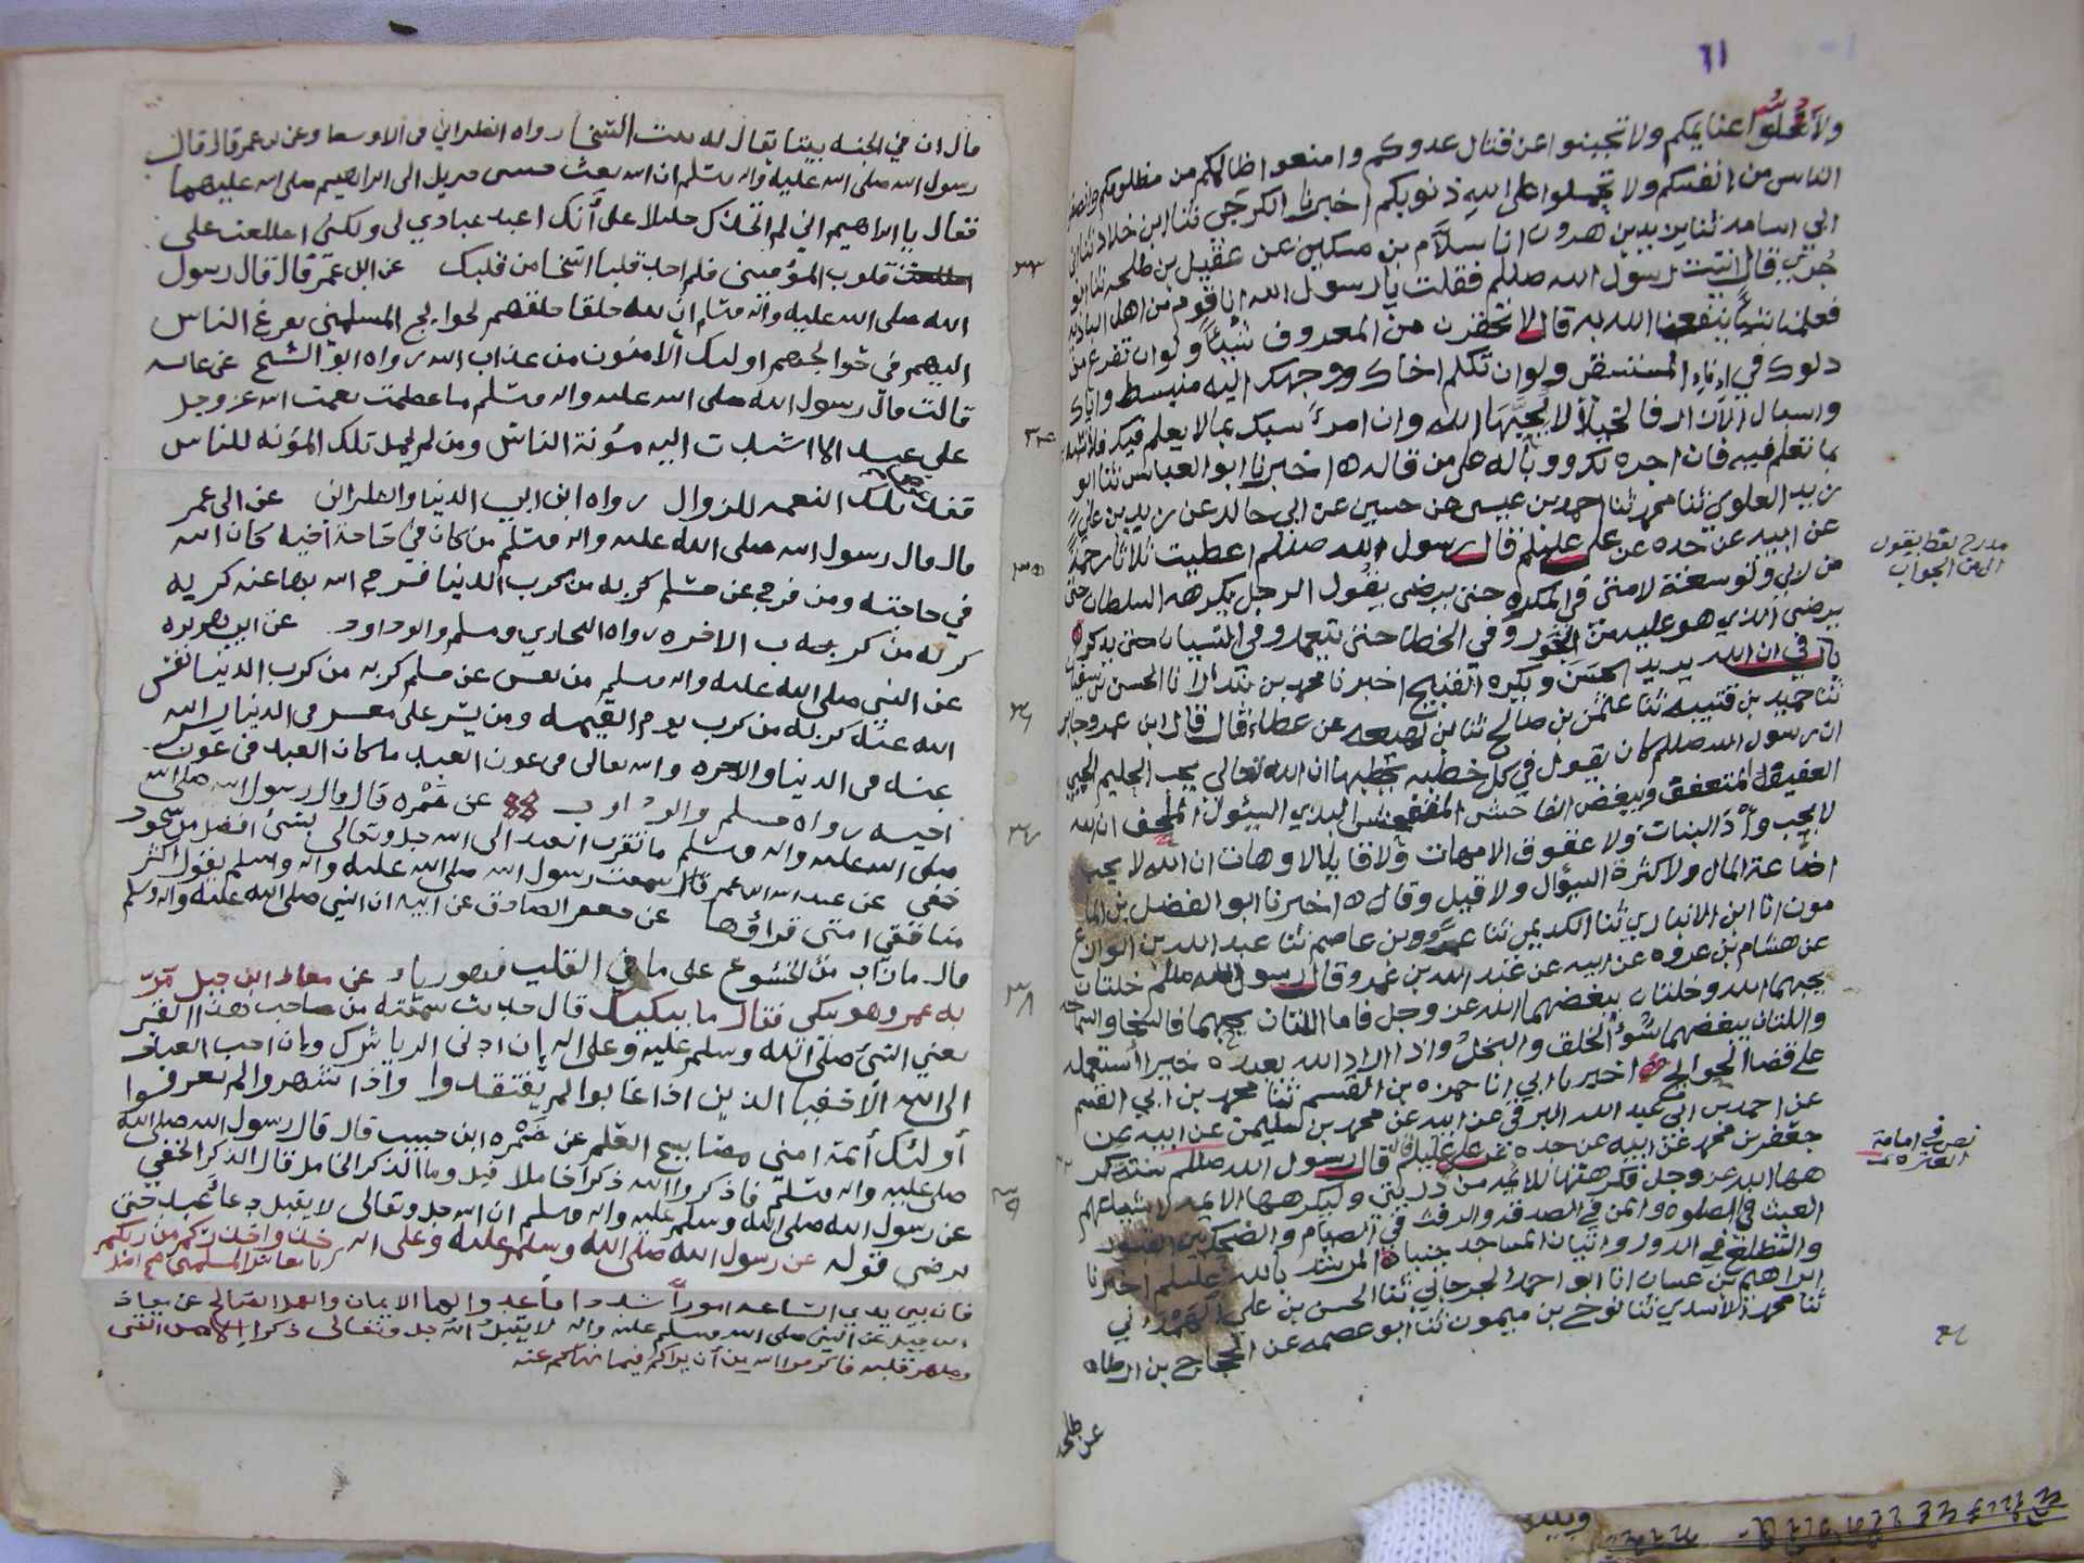 ٦١
ولا تغلوا غنايمكم ولا تجبنوا عن قتال عدوكم وامنعوا ظالمكم من مظلومكم
الناس من انفسكم ولا تحملوا على الله ذنوبكم اخبرنا الكرجي ثنا ابن خلاد ثنا
ابي اسامه ثنا يزيد بن هرون انا سلام بن مسكين عن عقيل بن طلحه ثنا ابو
جُرَي قال اتيت رسول الله صللم فقلت يا رسول الله انا قوم من اهل الباديه
فعلمنا شيئاً ينفعنا الله به قال لا تحقرن من المعروف شيئاً ولو ان تفرغ من
دلوك في اناء المستسقي ولو ان تكلم اخاك ووجهك اليه منبسط واياك
واسبال الازار فانها لا يحبها الله وان امرءً سبك بما لا يعلم فيك فلا
بما تعلم فيه فان اجره لك ووباله على من قاله ه اخبرنا ابو العباس ثنا ابو
زيد العلوي ثنا محمد ثنا احمد بن عيسى عن حسين عن ابي خالد عن زيد بن علي
عن ابيه عن جده عن علي عليلم قال رسول الله صللم اعطيت ثلاثا رحمة
من ربي وتوسعة لامتي في المكره حتى يرضى يقول الرجل يكرهه السلطان حتى
يرضى الذي هو عليه من الجور وفي الخطا حتى يتعمد وفي النسيان حتى يذكره
باب في ان الله يريد الحسن ويكره القبيح اخبرنا محمد بن بندار انا الحسن بن سفيان
ثنا حميد بن قتيبه ثنا عثمن بن صالح ثنا بن لهيعه عن عطاء قال قال ابن عمر وجابر
ان رسول الله صللم كان يقول في كل خطبه يخطبها ان الله تعالى يحب الحليم الحيي
العفيف المتعفف ويبغض الفاحش المتفحش البذي السئول الملحف ان الله
لا يحب وأد البنات ولا عقوق الامهات ولا قايلا لا وهات ان الله لا يحب
اضاعة المال ولا كثرة السؤال ولا قيل وقال ه اخبرنا ابو الفضل بن الما
مون انا ابن الانباري ثنا الكديمي ثنا عمرو بن عاصم ثنا عبد الله بن الوازع
عن هشام بن عروه عن ابيه عن عبد الله بن عمرو قال رسول الله صللم خلتان
يحبهما الله وخلتان يبغضهما الله عز وجل فاما اللتان يحبهما فالسخا والسماحه
واللتان يبغضهما سُوُء الخلق والبخل واذا اراد الله بعبده خيرا استعمله
على قضا الحوايج ه اخبرنا ابي انا حمزه بن القسم ثنا محمد بن ابي القسم
عن احمد بن ابي عبد الله البرقي عن محمد بن سليمن عن ابيه عن
جعفر بن محمد عن ابيه عن جده عن علي عليلم قال قال رسول الله صللم ستة كر
هها الله عز وجل فكرهتها للائمه من ذريتي وليكرهها الائمه لاتباعهم
العبث في الصلوه والمن في الصدقه والرفث في الصيام والضحك بين القبور
والتطلع في الدور واتيان المساجد جنبا ه المرشد بالله عليلم اخبرنا
ابراهيم بن غسان انا ابو احمد الجرجاني ثنا الحسن بن علي
ثنا محمد الاسدي ثنا نوح بن ميمون ثنا ابو عصمه عن الحجاج بن ارطاه
عن طلحه
مدرج لفظ يقول
الى من الجواب
نص في امامة
العتره
قال ان في الجنه بيتا يقال له بيت السخا رواه الطبراني في الاوسط وعن عمر قال قال
رسول الله صلى الله عليه واله وسلم ان الله بعث جبريل الى ابراهيم صلى الله عليهما
فقال يا ابراهيم اني لم اتخذك خليلا على أنك اعبد عبادي لي ولكني اطلعت على
قلوب المؤمنين فلم اجد قلبا اسخا من قلبك عن ابن عمر قال قال رسول
الله صلى الله عليه واله وسلم ان لله خلقا خلقهم لحوايج المسلمين يفزع الناس
اليهم في حوائجهم اوليك الامنون من عذاب الله رواه ابو الشيخ عن عايشه
قالت قال رسول الله صلى الله عليه واله وسلم ما عظمت نعمت الله عز وجل
على عبد الا اشتدت اليه مؤنة الناس ومن لم يحمل تلك المؤنه للناس
فقد عرض تلك النعمه للزوال رواه ابن ابي الدنيا والطبراني عن ابن عمر
قال قال رسول الله صلى الله عليه واله وسلم من كان في حاجة اخيه كان الله
في حاجته ومن فرج عن مسلم كربه من كرب الدنيا فرج الله بها عنه كربه
كربه من كرب الاخره رواه البخاري ومسلم وابو داود عن ابي هريره
عن النبي صلى الله عليه واله وسلم من نفس عن مسلم كربه من كرب الدنيا نفس
الله عنه كربه من كرب يوم القيمه ومن يسر على معسر في الدنيا يسر الله
عنه في الدنيا والاخره والله تعالى في عون العبد ما كان العبد في عون
اخيه رواه مسلم وابو داود عن ضمره قال قال رسول الله صلى الله
صلى الله عليه واله وسلم ما تقرب العبد الى الله جل وتعالى بشي افضل من سجود
خفي عن عبد الله ابن عمر قال سمعت رسول الله صلى الله عليه واله وسلم يقول اكثر
منافقي امتي قراؤها عن جعفر الصادق عن ابيه ان النبي صلى الله عليه واله وسلم
قال ما زاد من الخشوع على ما في القلب فهو رياء عن معاذ ابن جبل مرّ
به عمر وهو يبكي فقال ما يبكيك قال حديث سمعته من صاحب هذا القبر
يعني النبي صلى الله وسلم عليه وعلى اله بان ادنى الريا شرك وبان احب العباد
الى الله الاخفيا الذين اذا غابوا لم يفتقدوا واذا شهدوا لم يعرفوا
أولئك أئمة امتي مصابيح العلم عن ضَمْره ابن حبيب قال قال رسول الله صلى الله
صلى عليه واله وسلم فاذكروا الله ذكرا خاملا قيل وما الذكر الخامل قال الذكر الخفي
عن رسول الله صلى الله وسلم عليه واله وسلم ان الله جل وتعالى لا يقبل دعاء عبد حتى
يرضى قوله عن رسول الله صلى الله وسلم عليه وعلى اله
فان بين يدي الساعه اموراً شدادا
عن النبي صلى الله وسلم عليه واله لا يقبل الله جل وتعالى ذكرا
٣٣
٣٤
٣٥
٣٦
٣٧
٣٨
٣٩